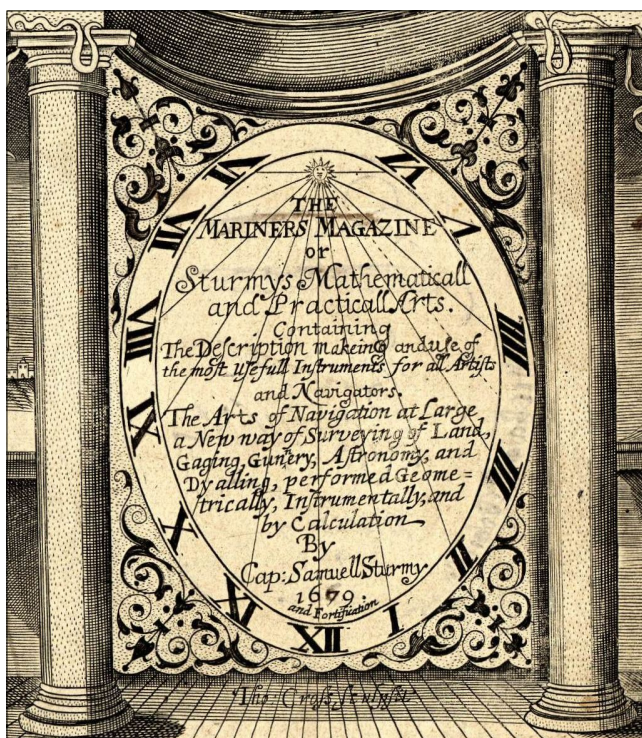 THE
MARINERS MAGAZINE
or
Sturmys Mathematicall
and Practicall Arts.
Containing
The Description makeing and use of
the most Usefull Instruments for all Artists
and Navigators.
The Arts of Navigation at Large
a New way of Surveying of Land,
Gaging, Gunery, Astronomy, and
Dyalling, performed Geome=
trically, Instrumentally, and
by Calculation
By
Cap: Samuell Sturmy
1679.
and Fortification
VI
VII
VIII
IX
X
XI
XII
I
II
III
IIII
V
VI
Tho Cross sculpsit